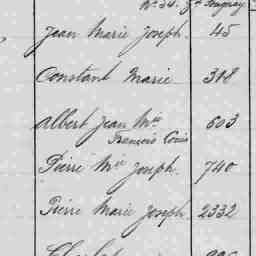 Jean Marie Joseph. 45
Constant Marie 318
Albert Jean Mie 603
Francois Louis
Pierre Mie Joseph. 740
Pierre Marie Joseph 2332